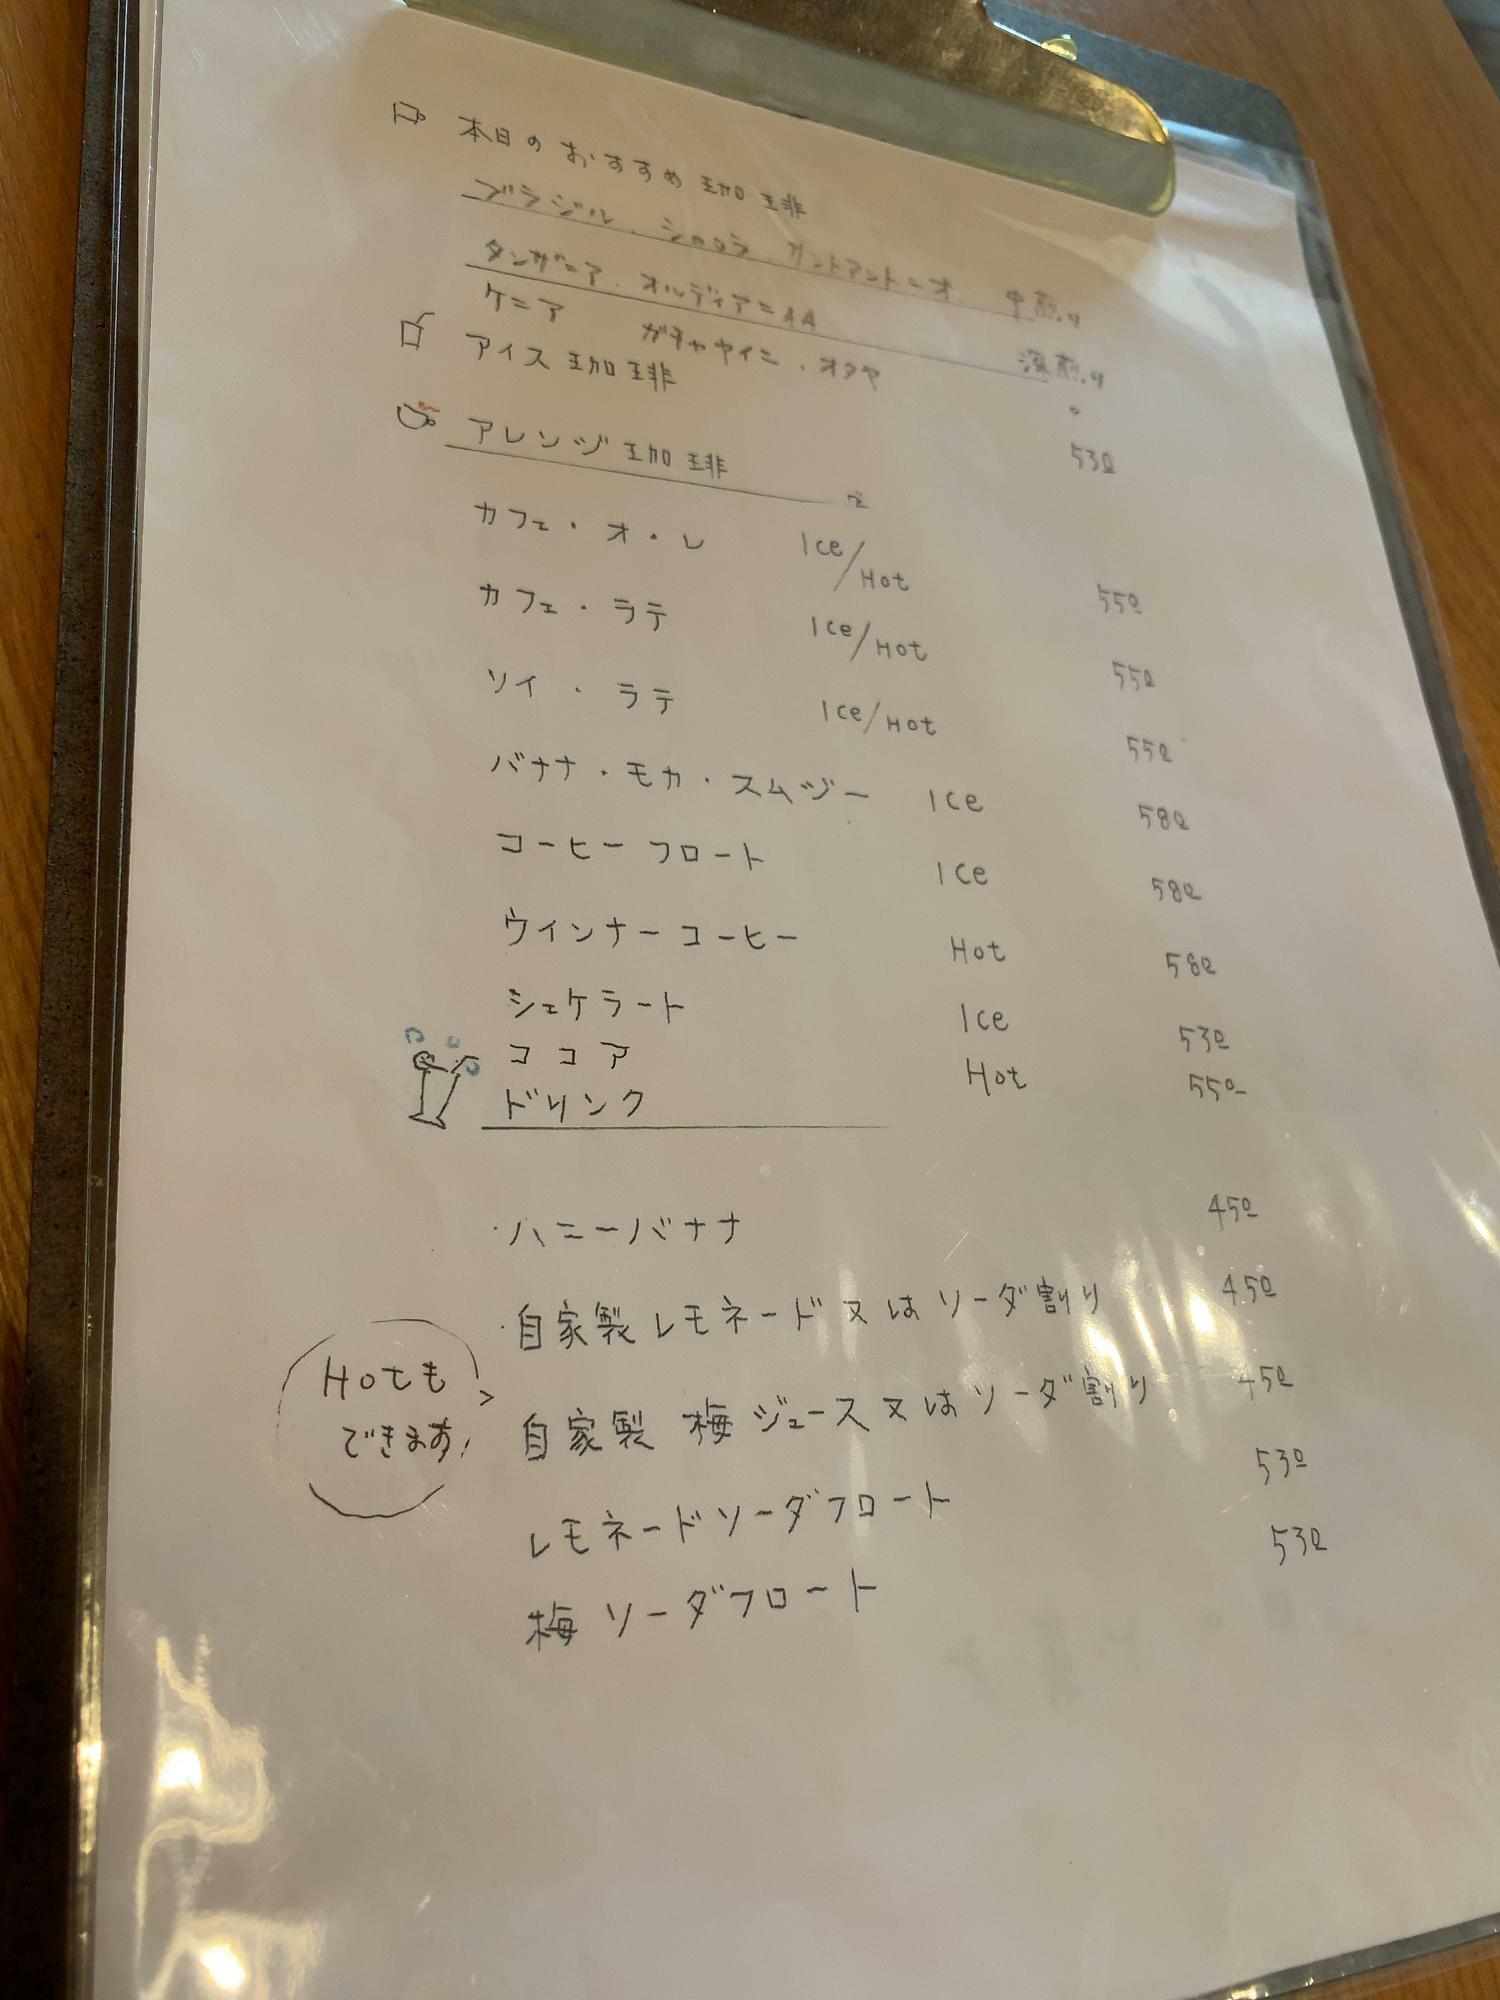 本日のおすすめ珈琲
ブラジル、ショコラ、サントアントニオ 中煎り
タンザニア、オルディアニAA 深煎り
ケニア ガチャヤイニ、オタヤ 〃
アイス珈琲 530
アレンジ珈琲
カフェ・オ・レ Ice/Hot 550
カフェ・ラテ Ice/Hot 550
ソイ・ラテ Ice/Hot 550
バナナ・モカ・スムジー Ice 580
コーヒーフロート Ice 580
ウインナーコーヒー Hot 580
シェケラート Ice 530
ココア Hot 550
ドリンク
・ハニーバナナ 450
・自家製レモネード又はソーダ割り 450
Hotもできます!
自家製 梅ジュース又はソーダ割り 450
レモネードソーダフロート 530
梅ソーダフロート 530